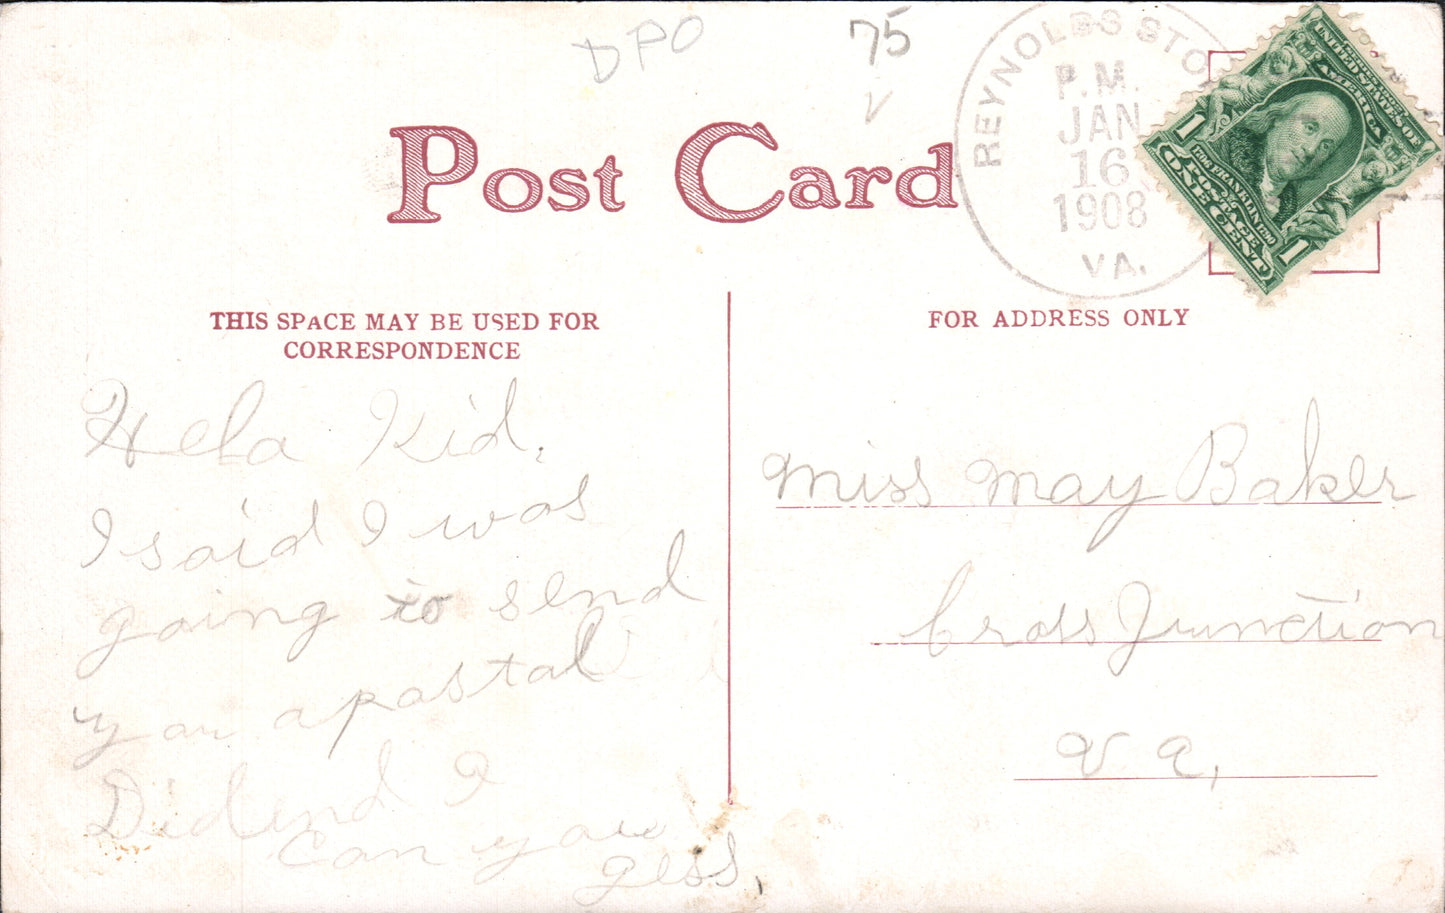 DPO
75
REYNOLDS STO
P.M.
JAN
16
1908
VA.
UNITED STATES OF
AMERICA
1706 FRANKLIN 1790
POSTAGE
1 ONE CENT 1
Post Card
THIS SPACE MAY BE USED FOR
CORRESPONDENCE
Helo Kid.
I said I was
going to send
you a postal
Didend I
Can you
gess,
FOR ADDRESS ONLY
Miss May Baker
Cross Junction
Va,